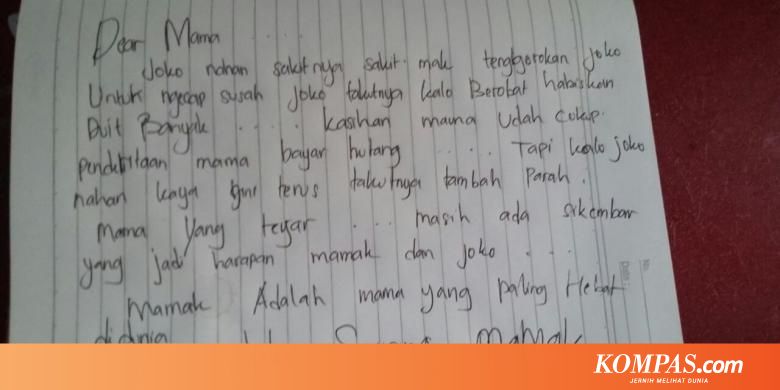 Dear Mama ....
Joko nahan sakitnya sakit mak tenggorokan Joko
Untuk ngecap susah Joko takutnya kalo Berobat habiskan
Duit Banyak .... kasihan mama Udah cukup
penderitaan mama bayar hutang .... Tapi kalo joko
nahan kaya gini terus takutnya tambah Parah.
mama yang tegar ... masih ada sikembar
yang jadi harapan mamak dan Joko ...
Mamak Adalah mama yang paling Hebat
didunia mamak
No.
Date:
KOMPAS.com
JERNIH MELIHAT DUNIA